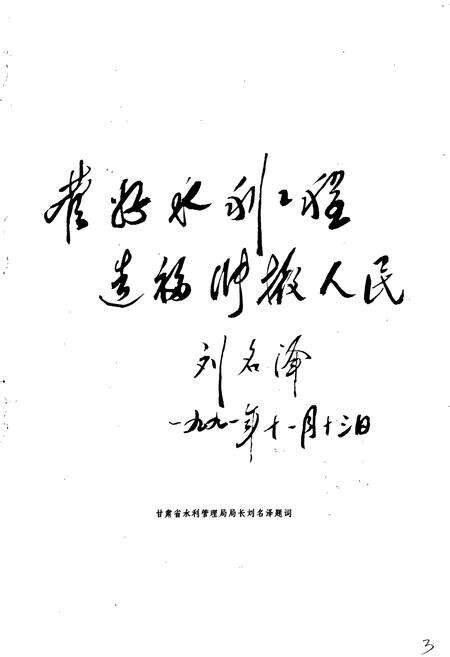 好水利工程
造福人民
刘名泽
一九九一年十一月十三日
甘肃省水利管理局局长刘名泽题词
3